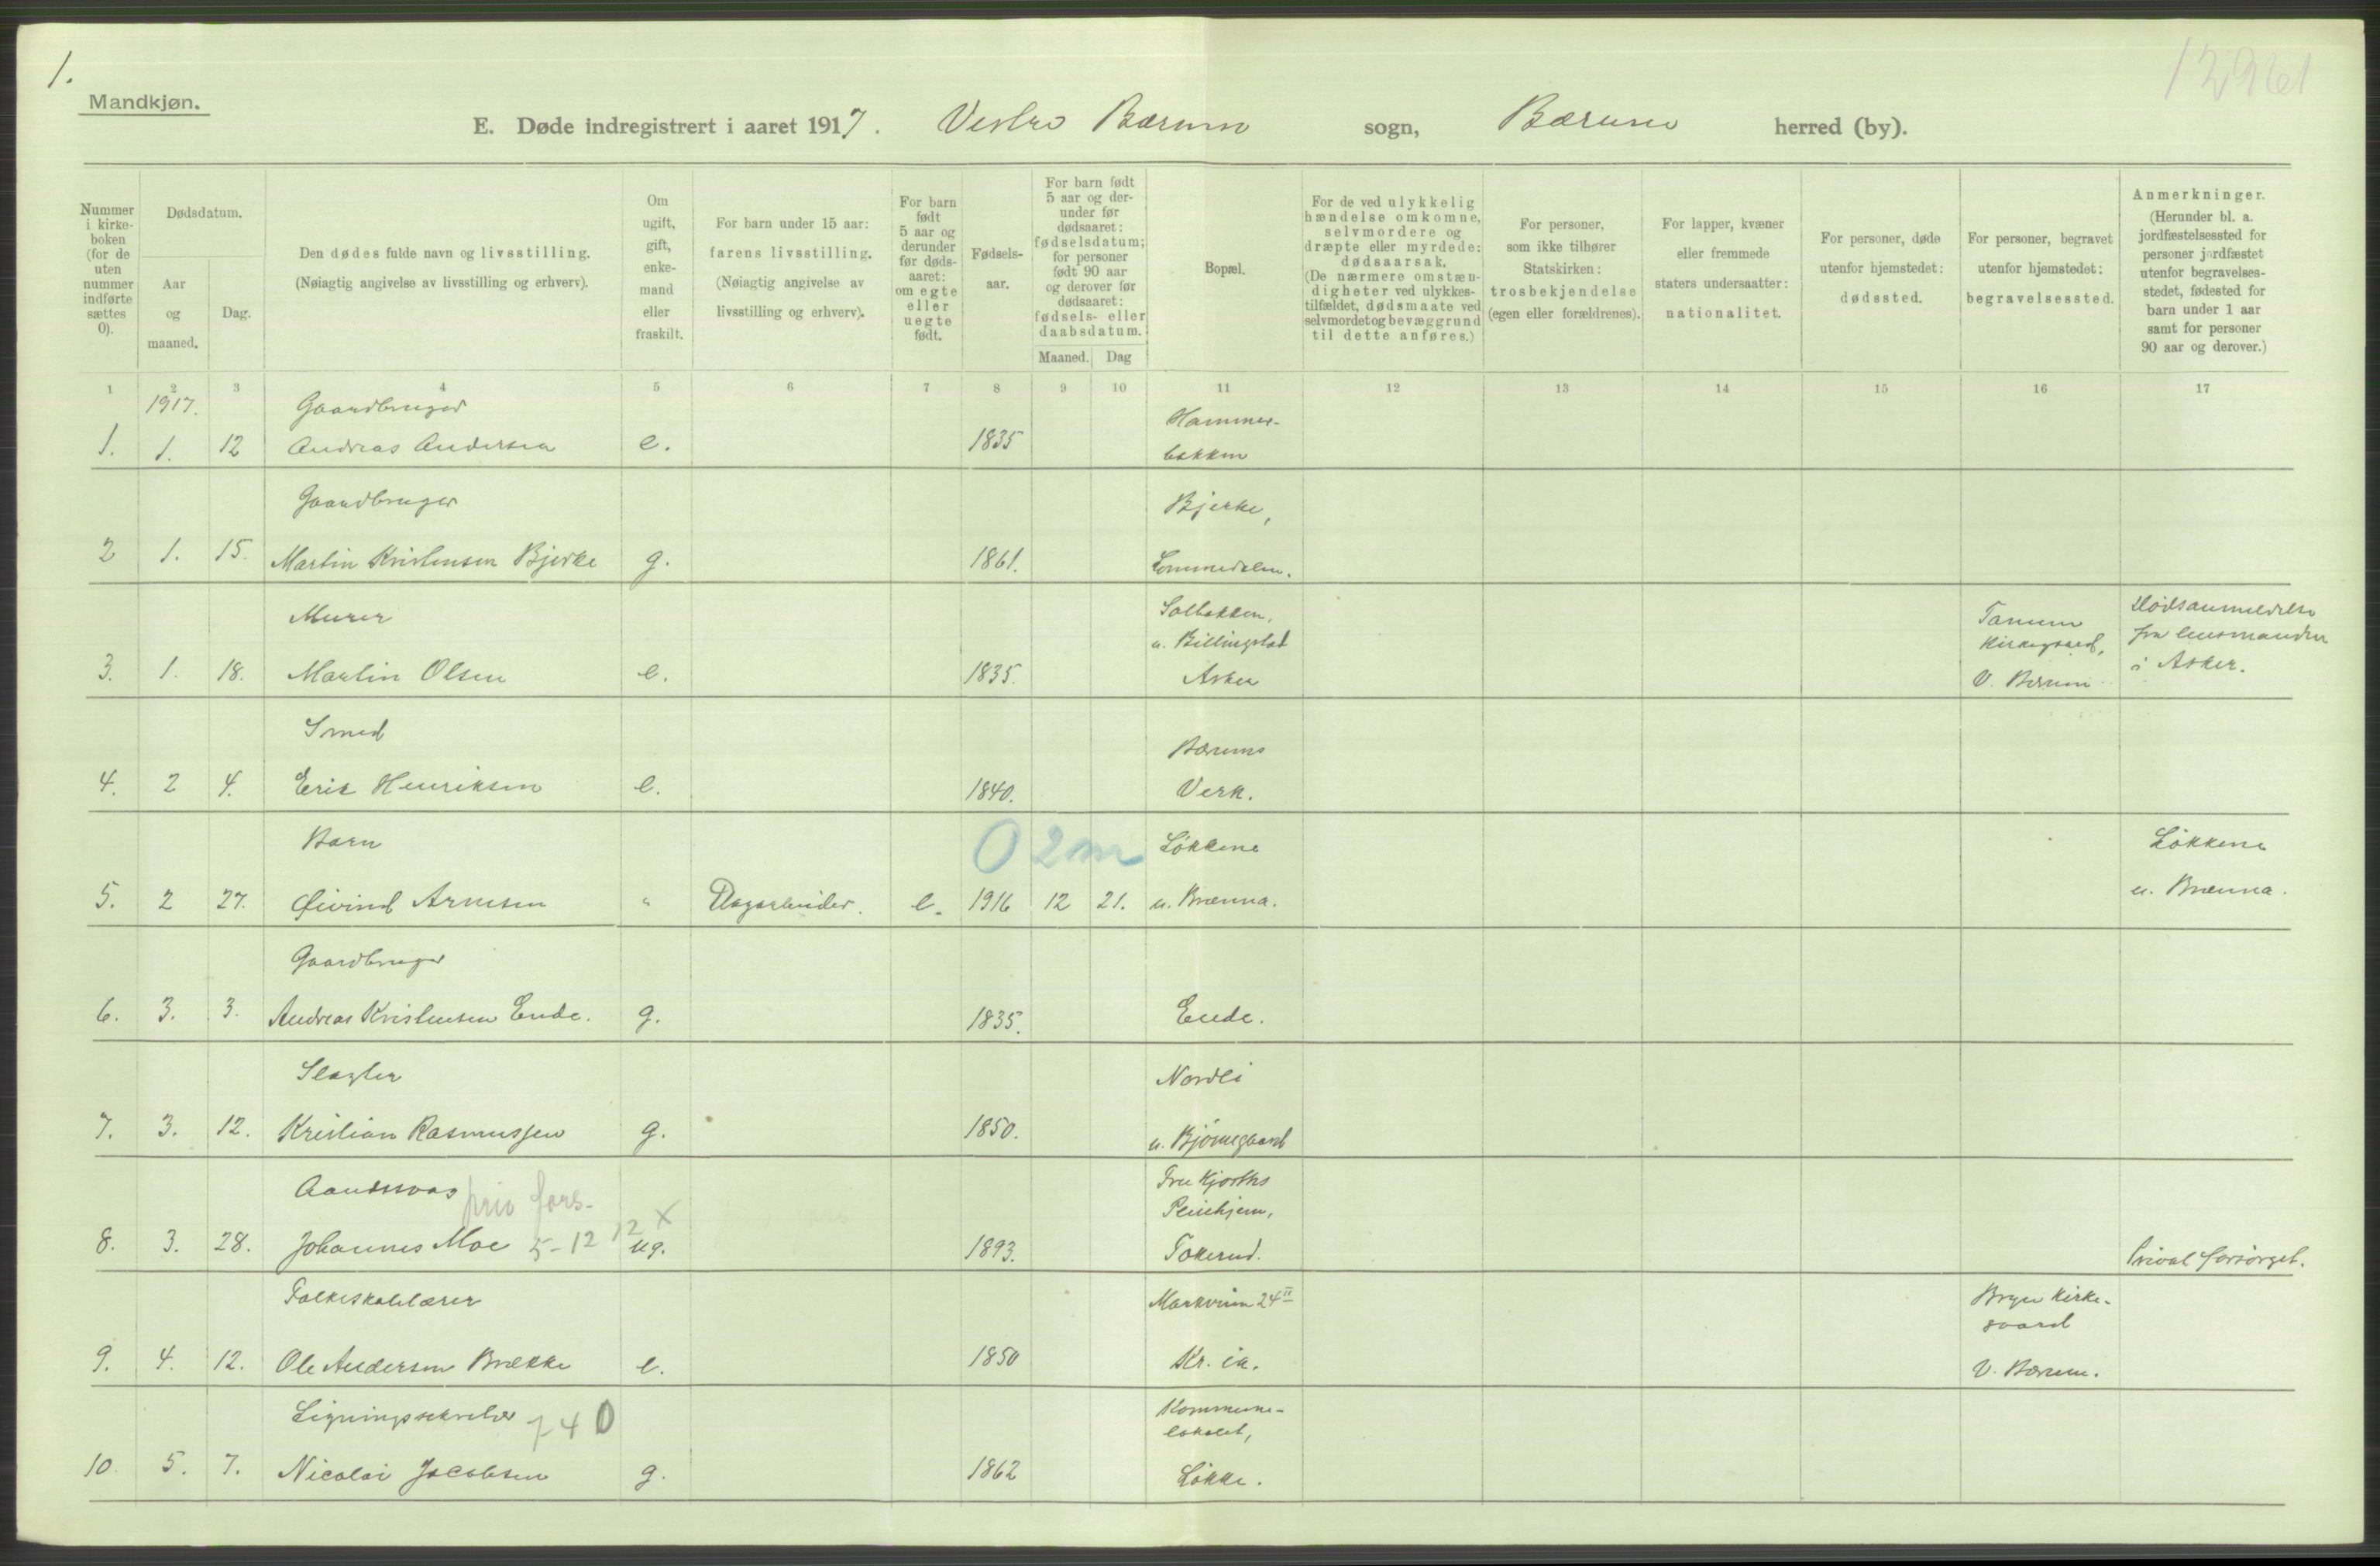 1.
12961
Mandkjøn.
E. Døde indregistrert i aaret 1917. Vestre Bærum sogn, Bærum herred (by).
Nummer i kirke-boken (for de uten nummer indførte sættes 0).
Dødsdatum.
Aar og maaned.
Dag.
Den dødes fulde navn og livsstilling.
(Nøiagtig angivelse av livsstilling og erhverv).
Om ugift, gift, enke-mand eller fraskilt.
For barn under 15 aar:
farens livsstilling.
(Nøiagtig angivelse av livsstilling og erhverv).
For barn født 5 aar og derunder før døds-aaret: om egte eller uegte født.
Fødsels-aar.
For barn født 5 aar og der-under før dødsaaret: fødselsdatum; for personer født 90 aar og derover før dødsaaret: fødsels- eller daabsdatum.
Maaned. Dag
Bopæl.
For de ved ulykkelig hændelse omkomne, selvmordere og dræpte eller myrdede: dødsaarsak.
(De nærmere omstæn-digheter ved ulykkes-tilfældet, dødsmaate ved selvmordet og bevæggrund til dette anføres.)
For personer, som ikke tilhører Statskirken: trosbekjendelse (egen eller forældrenes).
For lapper, kvæner eller fremmede staters undersaatter: nationalitet.
For personer, døde utenfor hjemstedet: dødssted.
For personer, begravet utenfor hjemstedet: begravelsessted.
Anmerkninger.
(Herunder bl. a. jordfæstelsessted for personer jordfæstet utenfor begravelses-stedet, fødested for barn under 1 aar samt for personer 90 aar og derover.)
1 2 3 4 5 6 7 8 9 10 11 12 13 14 15 16 17
1917.
Gaardbruger Hammer-
1. 1. 12 Andreas Andersen e. 1835 bakken
Gaardbruger Bjerke,
2 1. 15. Martin Kristensen Bjerke g. 1861. Lommedalen.
Murer Solbakken, Tanum Dødsanmeldelse
u. Billingstad Kirkegaard, fra lensmanden
3. 1. 18. Martin Olsen e. 1835. Asker V. Bærum i Asker.
Smed Bærums
4. 2 4. Erik Henriksen e. 1840. Verk.
Barn 0 2 m Løkkene Løkkene
5. 2 27. Øivind Arnesen " Dagarbeider. e. 1916 12 21. u. Brænna. u. Brænna.
Gaardbruger
6. 3. 3. Andreas Kristensen Eude. g. 1835. Eude.
Slagter Nordli
7. 3. 12. Kristian Rasmussen g. 1850. u. Bjørnegaard
Aandssvag priv fors. Fru Kjorths
Pleiehjem,
8. 3. 28. Johannes Moe 5-12 12 x ug. 1893. Tokerud. Privat forsørget.
Folkeskolelærer Markveien 24 II Bryn Kirke-
gaard
9. 4. 12. Ole Andersen Brække e. 1850 Kr.ia. V. Bærum.
Ligningssekretær 7 4 0 Kommune-
lokalet,
10. 5. 7. Nicolai Jacobsen g. 1862 Løkke.